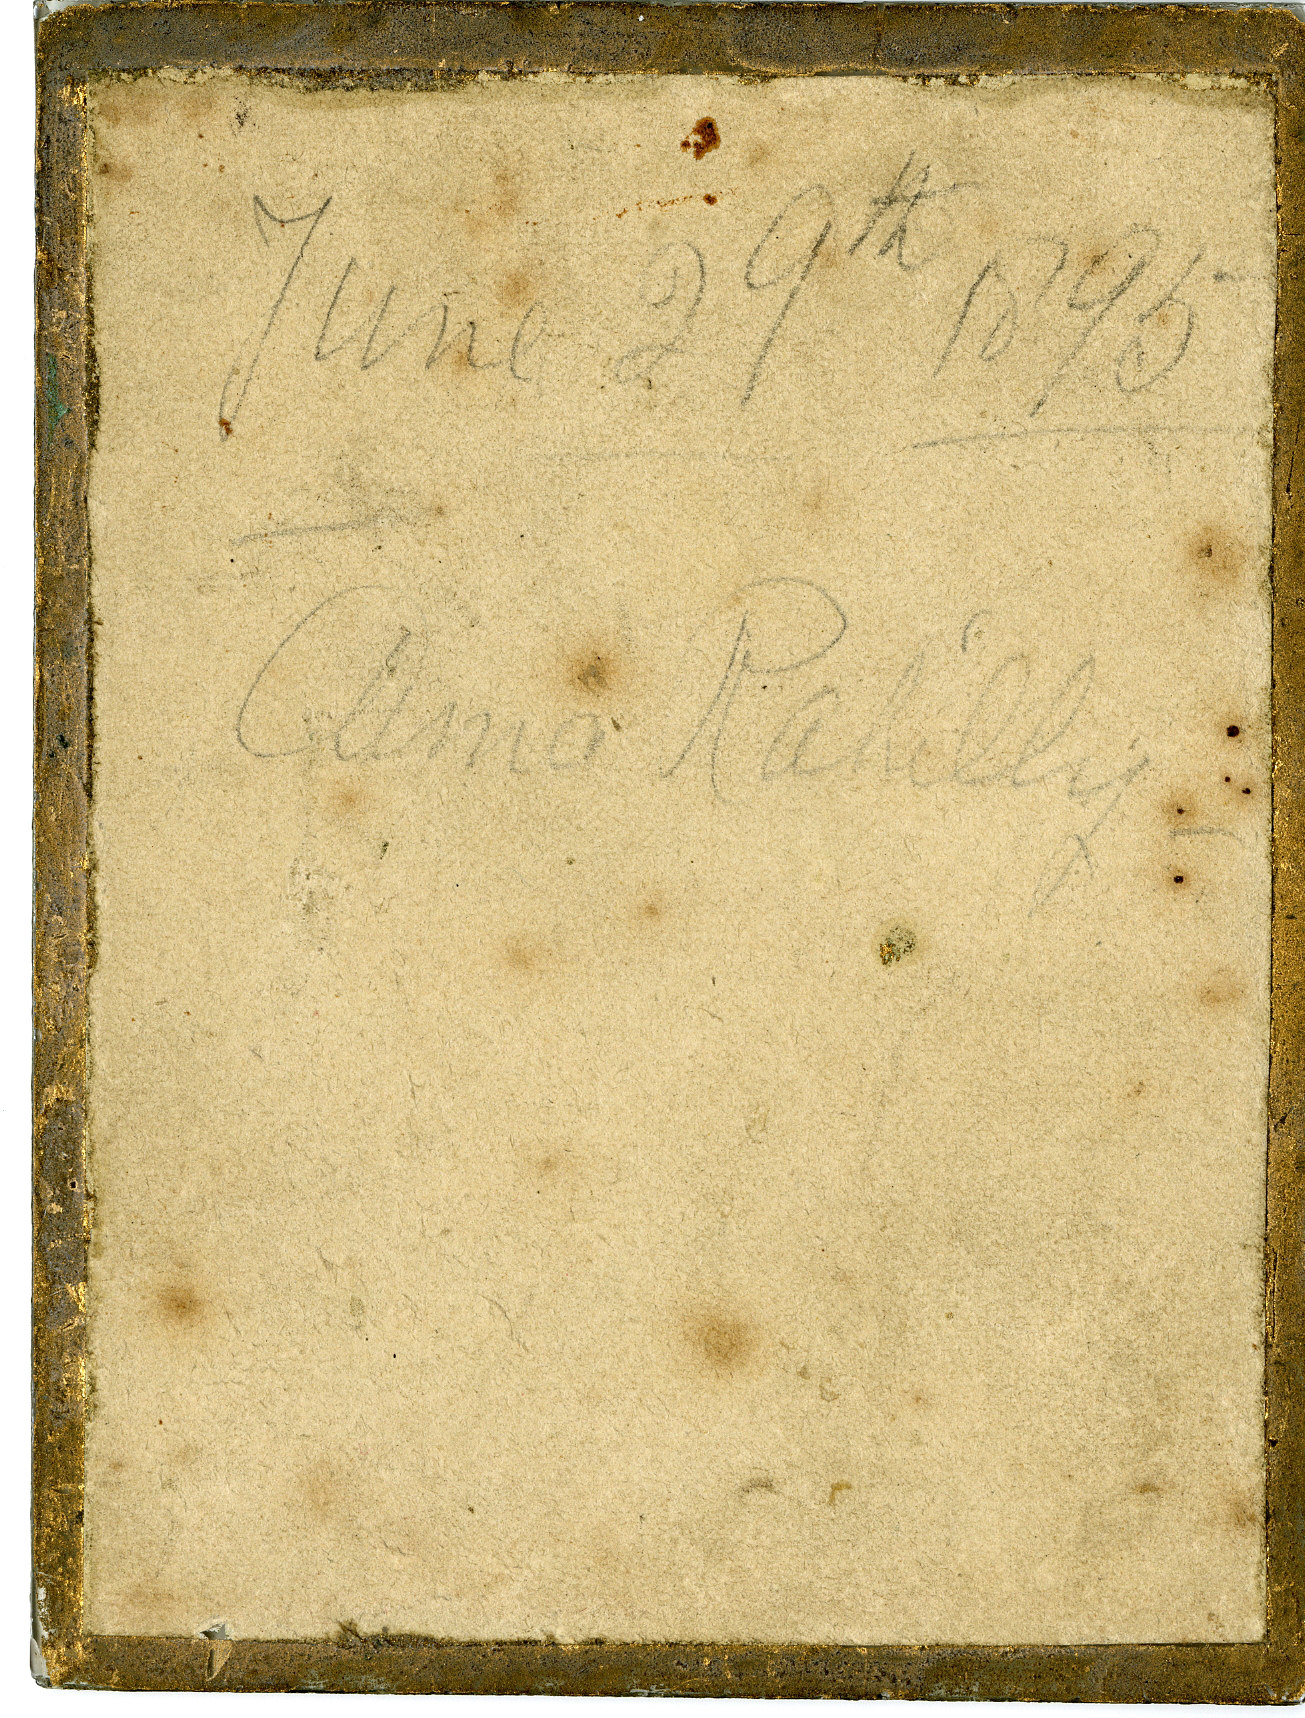 June 29th 1895
Rahilly